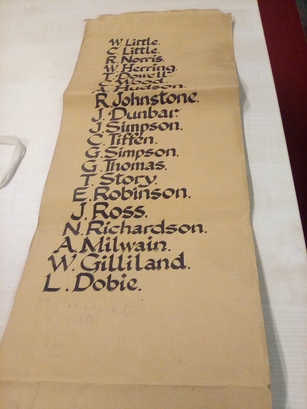 W. Little.
C. Little.
R. Norris.
W. Herring.
T. Dowell.
C. Wood.
A. Hudson.
R. Johnstone.
J. Dunbar.
J. Simpson.
C. Tiffen.
G. Simpson.
G. Thomas.
T. Story.
E. Robinson.
J. Ross.
N. Richardson.
A. Milwain.
W. Gilliland.
L. Dobie.